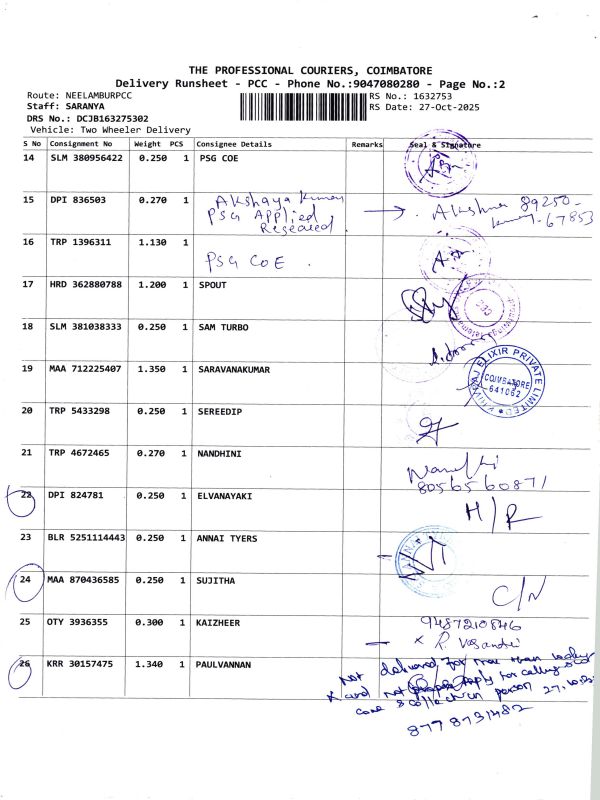 THE PROFESSIONAL COURIERS, COIMBATORE
Delivery Runsheet - PCC - Phone No.:9047080280 - Page No.:2
Route: NEELAMBURPCC RS No.: 1632753
Staff: SARANYA RS Date: 27-Oct-2025
DRS No.: DCJB163275302
Vehicle: Two Wheeler Delivery
S No Consignment No Weight PCS Consignee Details Remarks Seal & Signature
14 SLM 380956422 0.250 1 PSG COE
15 DPI 836503 0.270 1 Akshaya Kumar → Akshaya 89250-
PSG Applied Kumar-67853
Research
16 TRP 1396311 1.130 1
PSG COE .
17 HRD 362880788 1.200 1 SPOUT
18 SLM 381038333 0.250 1 SAM TURBO
19 MAA 712225407 1.350 1 SARAVANAKUMAR
ELIXIR PRIVATE LIMITED
COIMBATORE
641062
20 TRP 5433298 0.250 1 SEREEDIP
21 TRP 4672465 0.270 1 NANDHINI
Nandhi
8056560871
22 DPI 824781 0.250 1 ELVANAYAKI H/R
23 BLR 5251114443 0.250 1 ANNAI TYERS
24 MAA 870436585 0.250 1 SUJITHA C/N
25 OTY 3936355 0.300 1 KAIZHEER 9487210846
x R. Vasandhi
26 KRR 30157475 1.340 1 PAULVANNAN
Not delivered for
and not for calling
person 27.10.25
8778731482